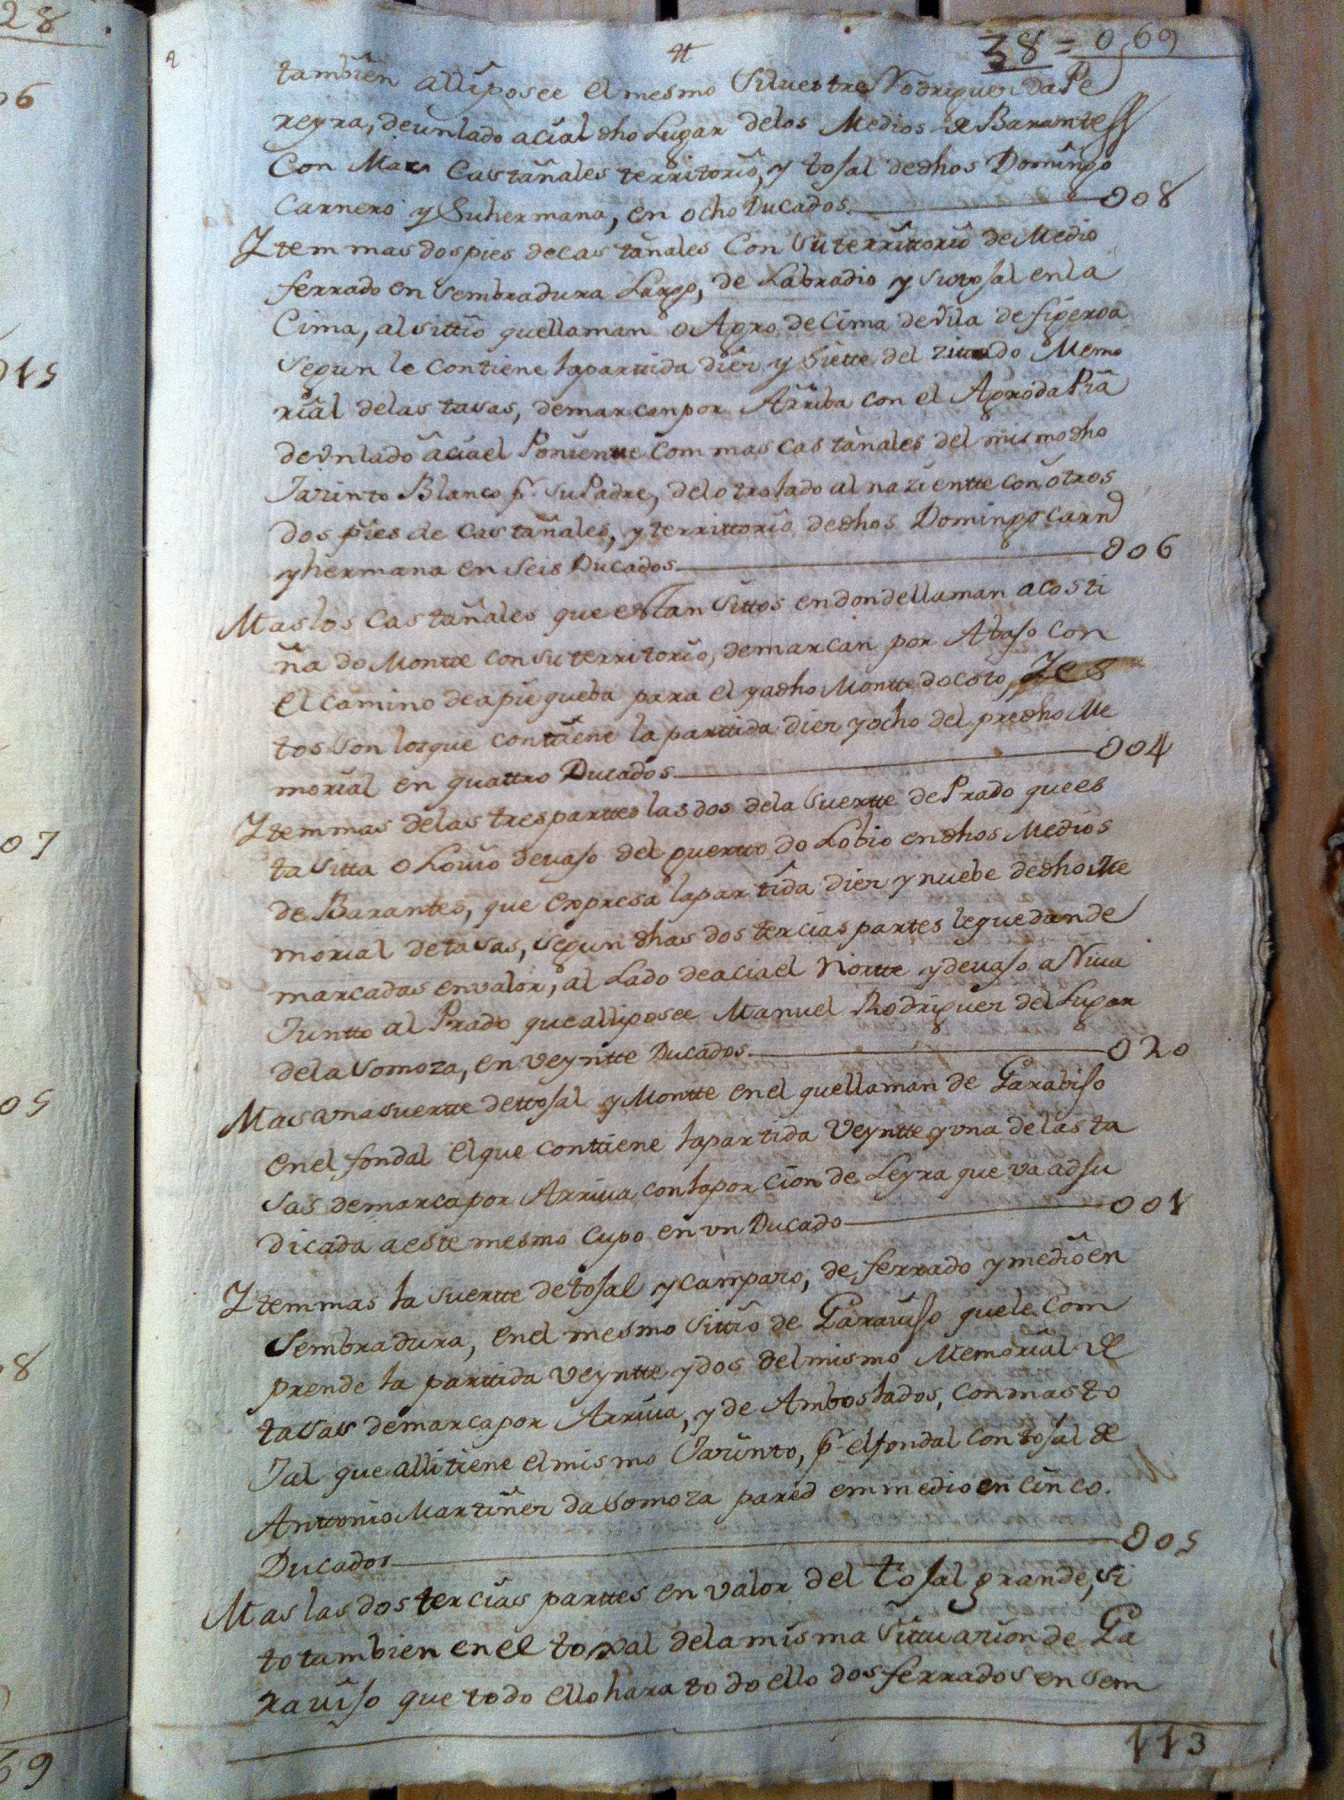 28
38 = 0,69
tambien alliposee el mesmo Silvestre Rodriguez da Pe
reyra, deunlado acial dho Lugar delos Medios de Barantes
Con Mas Castañales territorio, y tosal dedhos Domingo
Carnero y Suhermana, en ocho Ducados 008
Ytem mas dos pies decastañales Con Su territorio de Medio
ferrado en Sembradura Largo, de Labradio y Sutosal enla
Cima, al sittio quellaman o Agro de Cima de Vila de figeroa
Segun le Contiene lapartida diez y Siette del zittado Memo
rial delas tasas, demarcanpor Arriba con el Agro da
deVnlado âciael Poniente Com mas castañales del mismodho
Jazinto Blanco pr. Su Padre, delotrolado al nazientte con otros
dos pies de castañales, y territtorio dedhos Domingo Carno
yhermana en Seis Ducados 006
Maslos Castañales que estan Sittos endondellaman acosti
ña do Montte con suterritorio, demarcan por Abaso con
el camino deapie queba para el yadho Montte do Coto, Jes
tos son losque conttiene la parttida diez yocho del predho Me
morial en quattro Ducados 004
Ytemmas delas tresparttes lasdos dela Suertte de Prado quees
ta sitta o Lovio devaso del puertto do Lobio endhos Medios
de Barantes, que expresa lapartida diez ynuebe dedho Me
morial detasas, Segun dhas dos tercias partes lequedande
marcadas envalor, al Lado deaciael Nortte ydevaso a Niva
Juntto al Prado quealliposee Manuel Rodriguez del Lugar
dela Somoza, en veyntte Ducados 020
Masunasuertte dettosal y Montte enel quellaman de Garabiso
enel fondal elque conttiene lapartida Veyntte yvna delasta
sas demarcapor Arriva conlaporcion de Leyra que va adju
dicada aeste mesmo Cupo en vn Ducado 001
Ytemmas la suertte detosal ycamparo, de, ferrado ymedio en
Sembradura, enel mesmo Sittio de Garaviso quele Com
prende la parttida veyntte ydos delmismo Memorial de
tasas demarcapor Arriva, y de Amboslados, conmasto
Jal que alli tiene elmismo Jazinto, pr. elfondal con tosal de
Anttonio Martiñez da Somoza pared enmedio en Cinco.
Ducados 005
Mas las dos tercias parttes en valor del tosal grande, si
to tambien en el toxal delamisma Sittuazion de Ga
raviso que todo ello hara todo ello dos ferrados en Sem
113
06
015
07
05
08
69